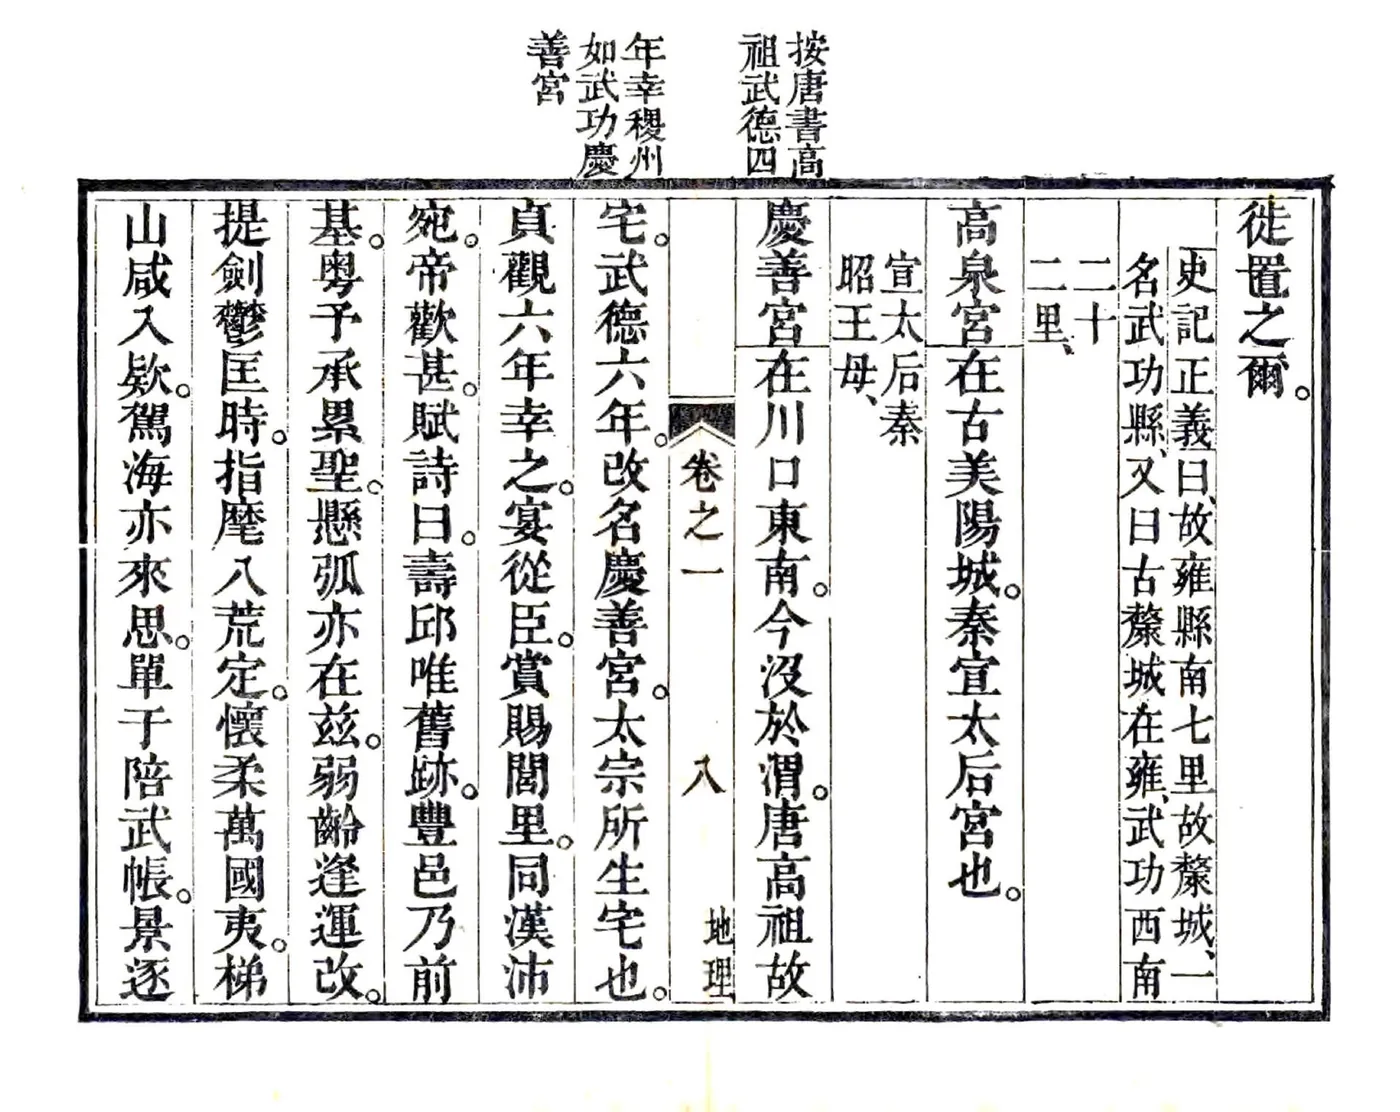 按唐書高
祖武德四
年幸稷州
如武功慶
善宮
徙置之爾。
史記正義曰、故雍縣南七里故斄城、一
名武功縣、又曰古斄城在雍、武功西南
二十
二里、
高泉宮在古美陽城。秦宣太后宮也。
宣太后秦
昭王母、
慶善宮在川口東南。今沒於渭。唐高祖故
卷之一 八 地理
宅。武德六年。改名慶善宮。太宗所生宅也。
貞觀六年幸之。宴從臣。賞賜閭里。同漢沛
宛。帝歡甚。賦詩曰。壽邱唯舊跡。豐邑乃前
基。粤予承累聖。懸弧亦在茲。弱齡逢運改。
提劍鬱匡時。指麾八荒定。懷柔萬國夷。梯
山咸入欵。駕海亦來思。單于陪武帳。景逐